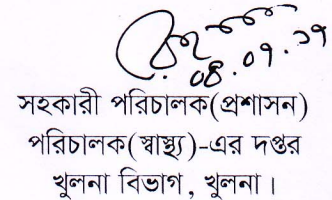 08.07.19
সহকারী পরিচালক(প্রশাসন)
পরিচালক(স্বাস্থ্য)-এর দপ্তর
খুলনা বিভাগ, খুলনা।